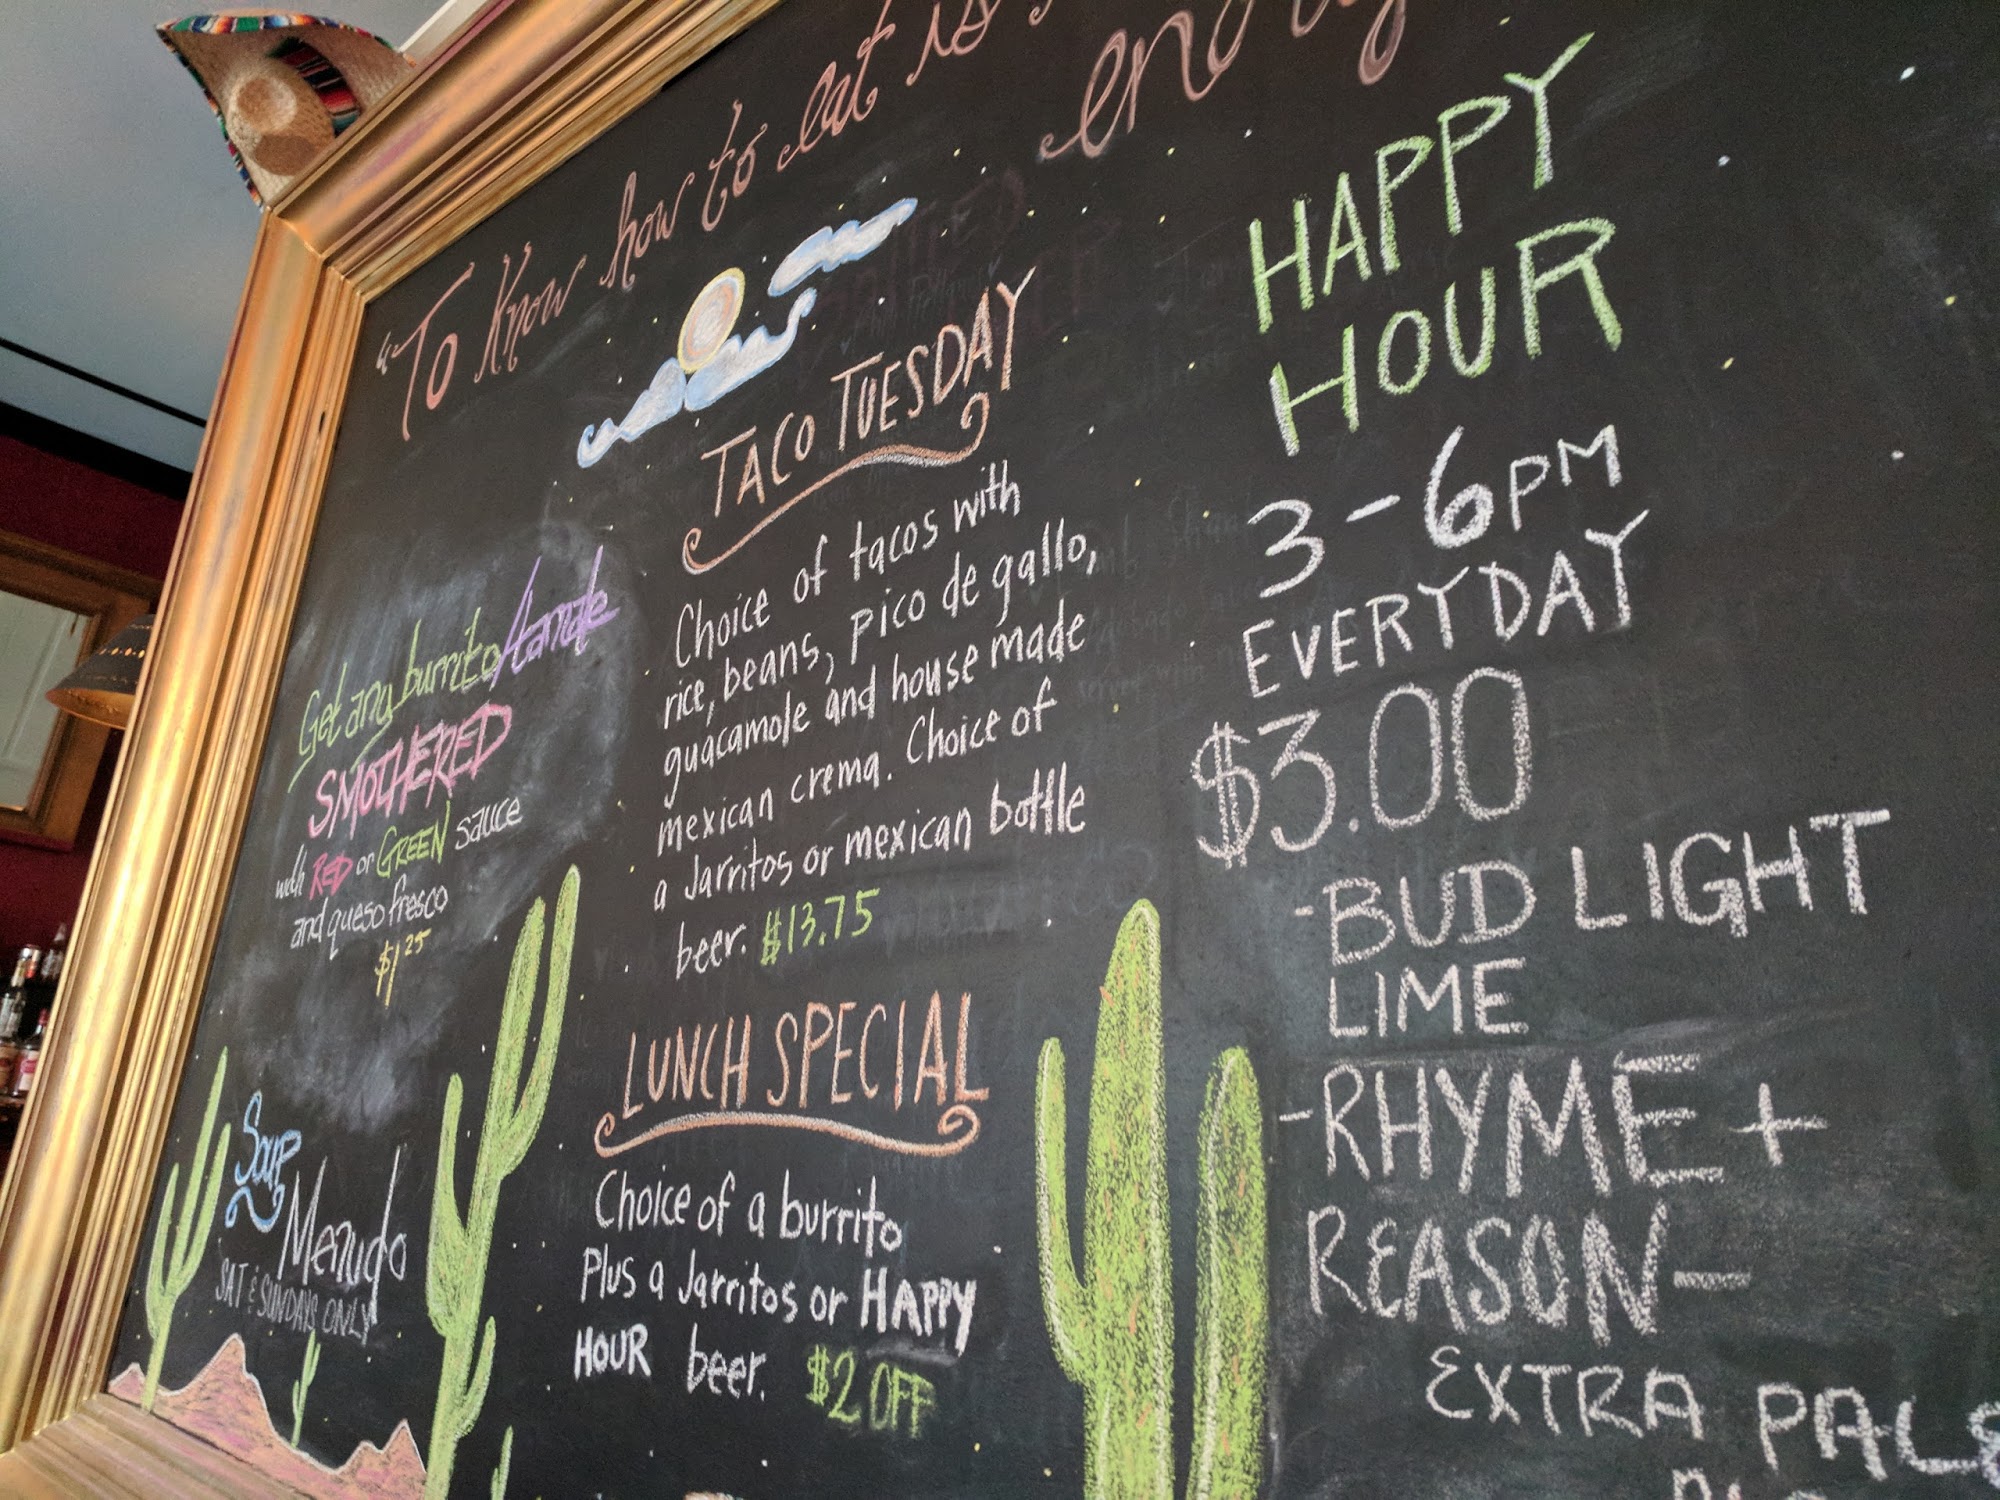 "To Know how to eat is
TACO TUESDAY
Choice of tacos with
rice, beans, pico de gallo,
guacamole and house made
mexican crema. Choice of
a Jarritos or mexican bottle
beer. $13.75
LUNCH SPECIAL
Choice of a burrito
Plus a Jarritos or HAPPY
HOUR beer. $2 OFF
Get any burrito/
SMOTHERED
with RED or GREEN sauce
and queso fresco
$1 25
Soup
Menudo
SAT & SUNDAYS ONLY
HAPPY
HOUR
3-6PM
EVERYDAY
$3.00
-BUD LIGHT
LIME
-RHYME +
REASON-
EXTRA PALE